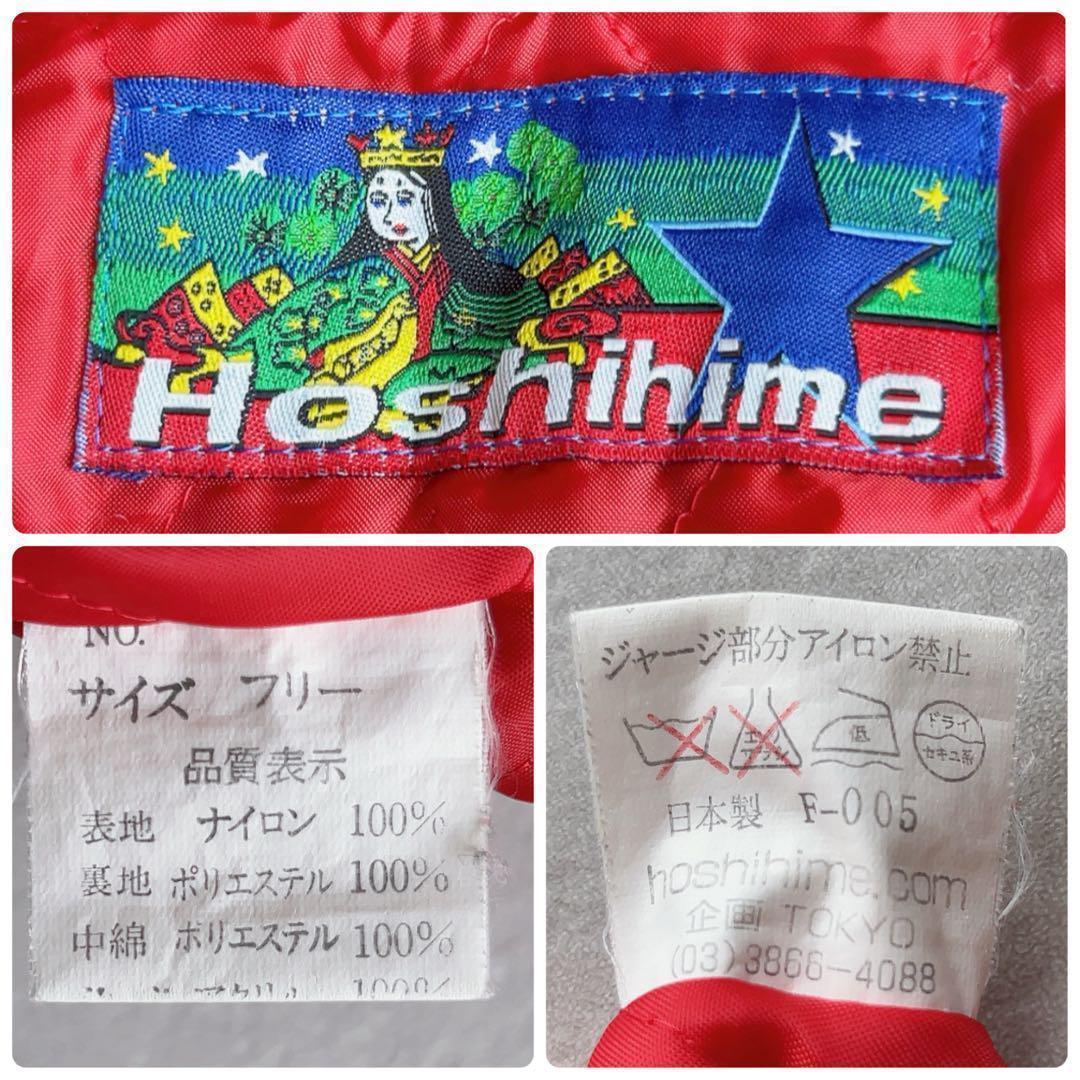 Hoshihime
NO.
サイズ フリー
品質表示
表地 ナイロン 100%
裏地 ポリエステル 100%
中綿 ポリエステル 100%
100%
ジャージ部分アイロン禁止
低
ドライ
セキユ系
日本製 F-005
hoshihime.com
企画 TOKYO
(03)3866-4088